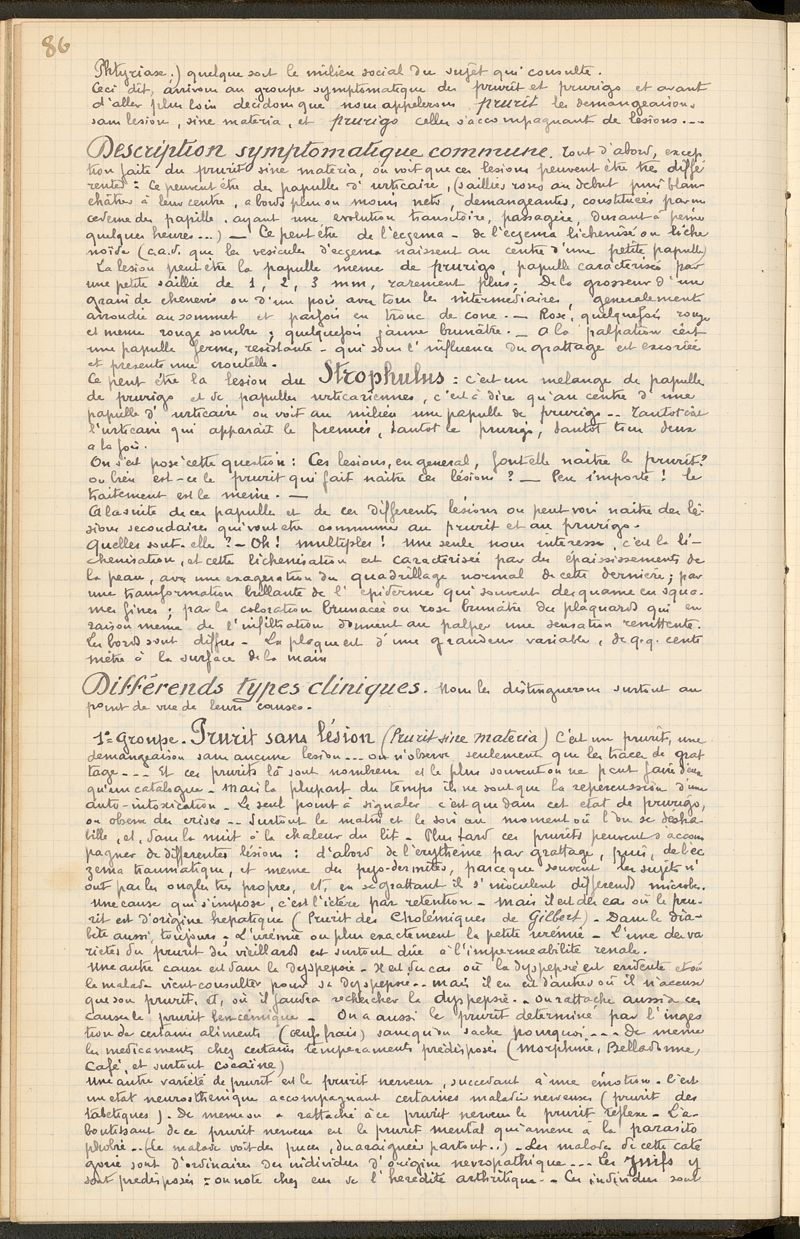 86
Phtyriase;) quelque soit le milieu social du sujet qui consulte.
Ceci dit, arrivons au groupe symptomatique des prurit et prurigo et avant
d'aller plus loin decidons que nous appelerons prurit les demangeaisons
sans lesion, sine materia, et prurigo celles s'accompagnant de lesions...
Description symptomatique commune. Tout d'abord, excep
tion faite du prurit sine materia, on voit que ces lesions peuvent être très diffé
rentes: Ce peuvent être des papules d'urticaire, (saillies roses au debut puis blan-
châtres à leur centre, a bords plus ou moins nets, demangeantes, constituées par un
œdeme des papilles, ayant une evolution transitoire, passagère, durant à peine
quelques heures...) — Ce peut être de l'eczema - de l'eczema lichenisé ou liche
noïde (c.a.d. que les vesicules d'eczema naissent au centre d'une petite papule)
La lesion peut être la papule meme de prurigo, papule caracterisée par
une petite saillie de 1, 2, 3 mm, rarement plus; De la grosseur d'un
grain de chenevis ou d'un pois avec tous les intermediaires, generalement
arrondie au sommet et parfois en tronc de cone. — Rose, quelquefois rouge
et meme rouge sombre; quelquefois jaune brunâtre. — a la palpation c'est
une papule ferme, resistante - qui sous l'influence du grattage est excoriée
et presente une croutelle.
Ce peut être la lesion du Strophulus: c'est un mélange de papules
de prurigo et de papules urticariennes, c'est à dire qu'au centre d'une
papule d'urticaire on voit au milieu une papule de prurigo.. Tantot c'est
l'urticaire qui apparait le premier, tantot le prurigo, tantot tous deux
a la fois.
On s'est posé cette question: Ces lesions, en general, font-elle naître le prurit?
ou bien est-ce le prurit qui fait naître ces lésions? — Peu importe! le
traitement est le meme. —
A la suite de ces papules et de ces differentes lesions on peut voir naitre des lé-
sions secondaires qui vont etre communes au prurit et au prurigo.
Quelles sont-elle? - Oh! multiples! Une seule nous interesse, c'est la li-
chenisation, et cette lichenisation est caractérisée par des épaississements de
la peau, avec une exageration du quadrillage normal de cette dernière; par
une transformation brillante de l'epiderme qui souvent desquame en squa-
mes fines; par la coloration brunacée ou rose brunâtre des plaquards qui en
raison meme de l'infiltration donnent au palper une sensation renittente.
Les bords sont diffus - La plaque est d'une grandeur variable, de q.q. centi
mètre à la surface de la main
Différends types cliniques. Nous les distinguerons surtout au
point de vue de leurs causes.
1º Groupe. Prurit sans lésion (Prurit sine materia) C'est un prurit, une
demangeaison sans aucune lesion... on n'observe seulement que les traces de grat
tage... Et ces prurits là sont nombreux et le plus souvent on ne peut faire d'eux
qu'un catalogue - Mais la plupart du temps ils ne sont que la repercussion d'une
auto-intoxication. Le seul point à signaler c'est que dans cet etat de prurigo,
on observe des crises.. surtout le matin et le soir au moment où l'on se désha-
bille, et, dans la nuit à la chaleur du lit - Plus tard ces prurits peuvent s'accom
pagner de differentes lésions: d'abord de l'erythème par grattage, puis, de l'ec
zema traumatique, et meme des pyo-dermites, parceque souvent les sujets n'
ont pas les ongles très propres, et, en se grattant il s'inoculent differends microbes.
Une cause qui s'impose, c'est l'ictère par retention - Mais il est des cas où le pru-
rit est d'origine hepatique (Prurit des Cholémiques de Gilbert) - Dans le dia-
bète aussi, toujours; L'urémie ou plus exactement la petite urémie - L'une des va
rietés du prurit des vieillards est surtout dûe à l'impermeabilité renale.
Une autre cause est dans la dyspepsie - Il est des cas où la dyspepsie est evidente et où
le malade vient consulter pour sa dyspepsie.. mais il en est d'autres où il n'accuse
que son prurit, et, où il faudra rechercher la dyspepsie. - On rattache aussi à ces
causes le prurit leucémique - On a aussi le prurit determiné par l'inges
tion de certains aliments (œufs frais) sans qu'on sache pourquoi... De meme
les medicaments chez certains temperaments prédisposés (morphine, Belladonne,
Café, et surtout cocaïne)
Une autre variété de prurit est le prurit nerveux, succedant à une émotion - c'est
un etat neurosthenique accompagnant certaines maladies nerveuses (prurit des
tabetiques). De meme on a rattaché à ce prurit nerveux le prurit réflexe - L'a-
boutissant de ce prurit nerveux est le prurit mental qui amene à la parasito
phobie.. (le malade voit des puces, des araignées partout..) - Les malades de cette caté
gorie sont d'ordinaires des individus d'origine nevropathique... Les Juifs y
sont predisposés: on note chez eux de l'hérédité arthritique. - Ces individus sont